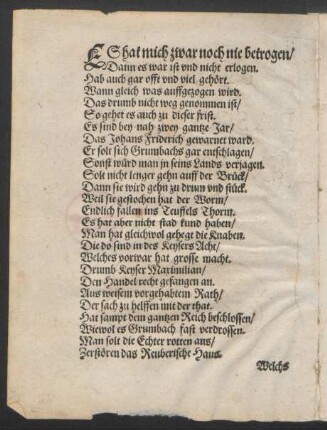 ES hat mich zwar noch nie betrogen/
Dann es war ist vnd nicht erlogen.
Hab auch gar offt vnd viel gehört.
Wann gleich was auffgezogen wird.
Das drumb nicht weg genommen ist/
So gehet es auch zu dieser frist.
Es sind bey nah zwey gantze Jar/
Das Johans Friderich gewarnet ward.
Er solt sich Grumbachs gar entschlagen/
Sonst würd man jn seins Lands verjagen.
Solt nicht lenger gehn auff der Brück/
Dann sie wird gehn zu drum vnd stück.
Weil sie gestochen hat der Worm/
Endlich fallen ins Teuffels Thorm.
Es hat aber nicht stad fund haben/
Man hat gleichwol gehegt die Knaben.
Die do sind in des Keysers Acht/
Welches vorwar hat grosse macht.
Drumb Keyser Maximilian/
Den Handel recht gefangen an.
Aus weisem vorgehabtem Rath/
Der sach zu helffen mit der that.
Hat sampt dem gantzen Reich beschlossen/
Wiewol es Grumbach fast verdrossen.
Man solt die Echter rotten aus/
Zerstören das Reuberische Haus.
Welchs